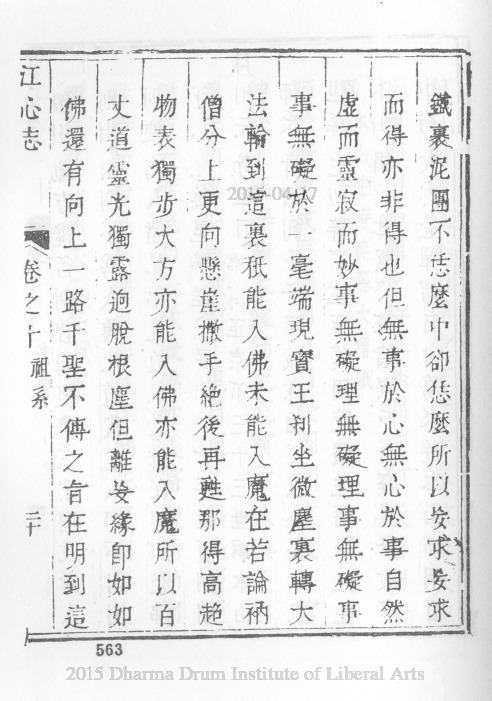 鐵裹泥團不恁麼中卻恁麼所以妄求妄求
而得亦非得也但無事於心無心於事自然
虛而靈寂而妙事無礙理無礙理事無礙事
事無礙於一毫端現寶王刹坐微塵裏轉大
法輪到這裏秖能入佛未能入魔在若論衲
僧分上更向懸崖撒手絕後再甦那得高超
物表獨步大方亦能入佛亦能入魔所以百
丈道靈光獨露迥脫根塵但離妄緣卽如如
佛還有向上一路千聖不傳之旨在明到這
江心志 卷之十 祖系 二十
563
2015 Dharma Drum Institute of Liberal Arts